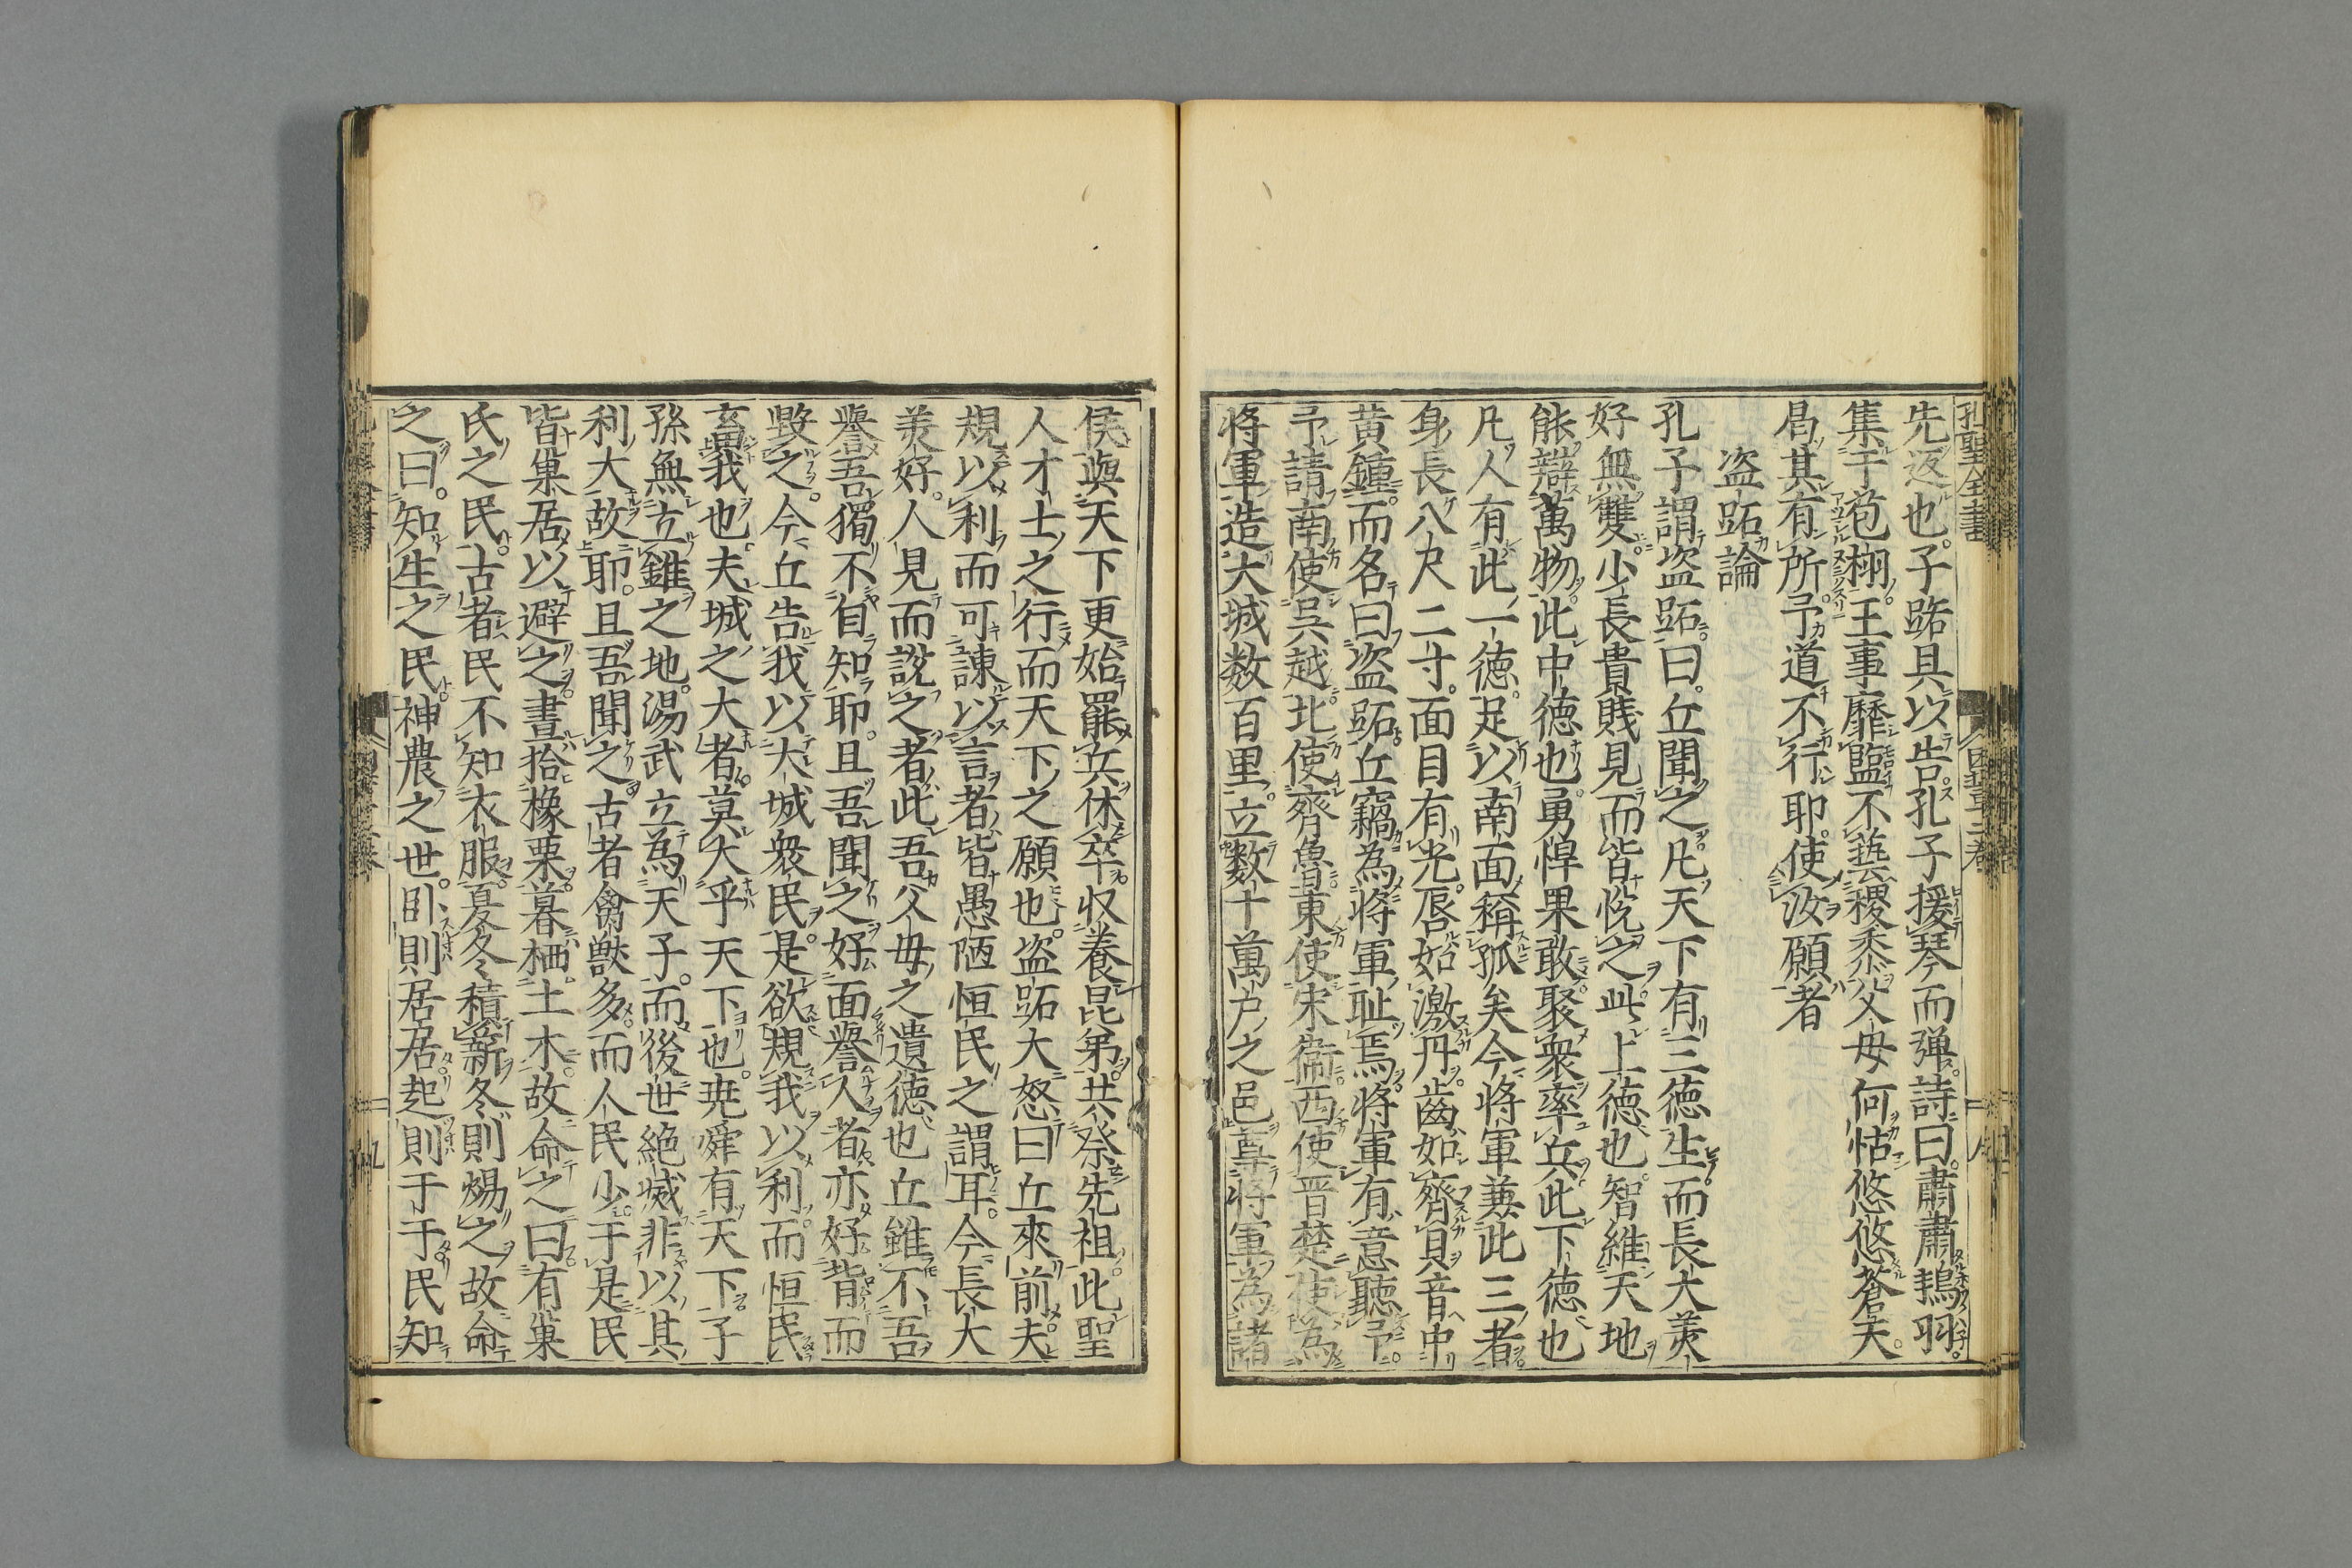 先返也。子跖具以告孔子援琴而弾。詩曰。肅肅鴇羽。
集于苞栩。王事靡盬不蓺稷黍父母何怙悠悠蒼天。
曷其有所。予道不行耶。使汝願者
盗跖論
孔子謂盗跖。曰。丘聞之。凡天下有三徳生而長大羙
好無雙。少長貴賎見而皆悦之。此上徳也。智維天地
能辯萬物。此中徳也。勇悍果敢。聚衆率兵。此下徳也
凡人有此一徳。足以南面稱孤矣今将軍兼此三者。
身長八尺二寸。面目有光。唇如激丹。齒如齊貝。音中
黄鐘。而名曰盗跖。丘竊為将軍恥焉。将軍有意聽予。
予請南使呉越。北使齊魯。東使宋衞。西使晋楚。使為
将軍造大城数百里。立数十萬戸之邑。尊将軍為諸
侯與天下更始。罷兵休卒。収養昆弟。共祭先祖。此聖
人才士之行而天下之願也。盗跖大怒曰丘來前夫
規以利而可諌以言者。皆愚陋恒民之謂耳。今長大
羙好。人見而説之者。此吾父毋之遺徳也丘雖不吾
譽吾獨不自知耶。且吾聞之。好面譽人者亦好背而
毀之。今丘告我以大城衆民。是欲規我以利而恒民
畜我也。夫城之大者。莫大乎天下也。尭舜有天下。子
孫無立錐之地。湯武立為天子。而後世絶滅非以其
利大故耶。且吾聞之。古者禽獣多。而人民少。于是民
皆巢居以避之。晝拾橡栗。暮栖土木。故命之曰有巢
氏之民。古者民不知衣服。夏多積薪。冬則煬之故命
之曰。知生之民。神農之世。卧則居居。起則于于民知